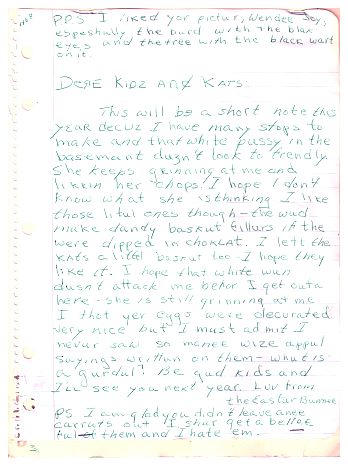 PPS I liked yor pictur, Wendee Joy,
espeshully the burd with the blak
eyes and the tree with the black wart
on it.
Dere Kidz and Kats:
This will be a short note this
year becuz I have many stops to
make and that white pussy in the
basemant duzn't look to frendly.
She keeps grinning at me and
likkin her chops! I hope I don't
know what she is thinking I like
those litul ones though - the wud
make dandy baskut fillurs if the
were dipped in choklat. I left the
kats a litul baskut too - I hope they
like it. I hope that white wun
dusn't attack me befor I get outa
here - she is still grinning at me
I thot yer eggs were decurated
very nice but I must admit I
never saw so manee wize apful
sayings written on them - what is
a gurdul? Be gud kids and
I'll see you next year. Luv from
the Eastar Bunnee
PS. I am glad you didn't leave anee
carruts out I shur get a belloe
ful of them and I hate em.
3